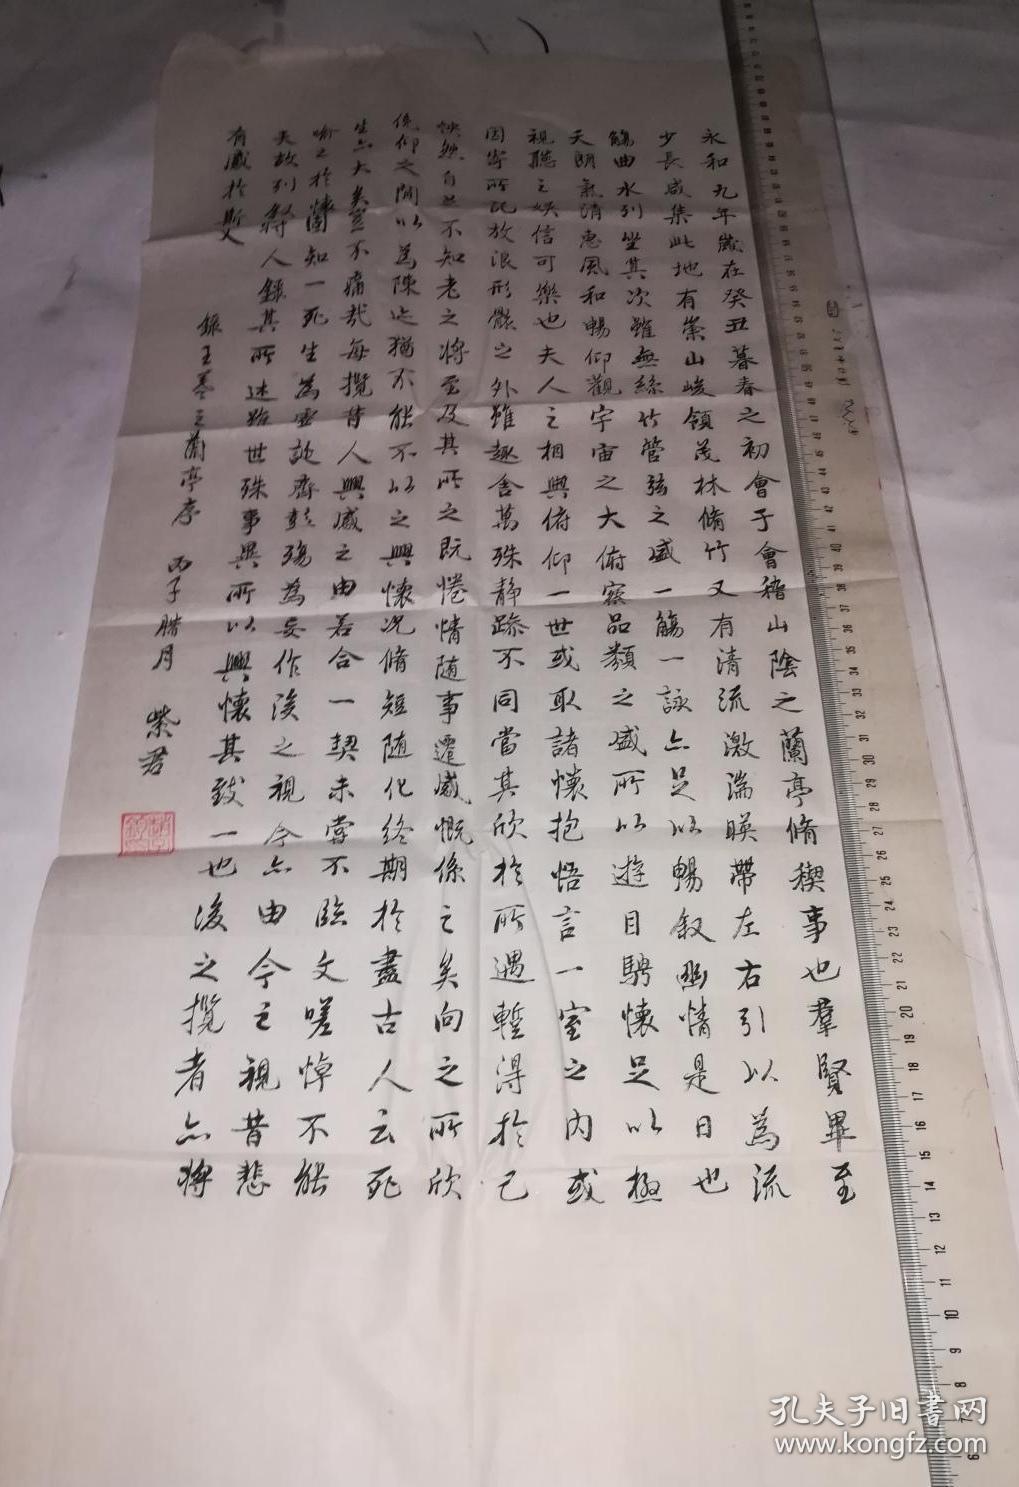 永和九年歲在癸丑暮春之初會于會稽山陰之蘭亭脩稧事也羣賢畢至
少長咸集此地有崇山峻領茂林脩竹又有清流激湍暎帶左右引以為流
觴曲水列坐其次雖無絲竹管弦之盛一觴一詠亦足以暢叙幽情是日也
天朗氣清惠風和暢仰觀宇宙之大俯察品類之盛所以遊目騁懷足以極
視聽之娛信可樂也夫人之相與俯仰一世或取諸懷抱悟言一室之內或
因寄所託放浪形骸之外雖趣舍萬殊靜躁不同當其欣於所遇暫得於己
怏然自足不知老之將至及其所之既惓情隨事遷感慨係之矣向之所欣
俛仰之間以為陳迹猶不能不以之興懷况脩短隨化終期於盡古人云死
生亦大矣豈不痛哉每攬昔人興感之由若合一契未嘗不臨文嗟悼不能
喻之於懷固知一死生為虛誕齊彭殤為妄作後之視今亦由今之視昔悲
夫故列敘時人錄其所述雖世殊事異所以興懷其致一也後之攬者亦將
有感於斯文
錄王羲之蘭亭序 丙子腊月 紫君
孔夫子旧書网
www.kongfz.com